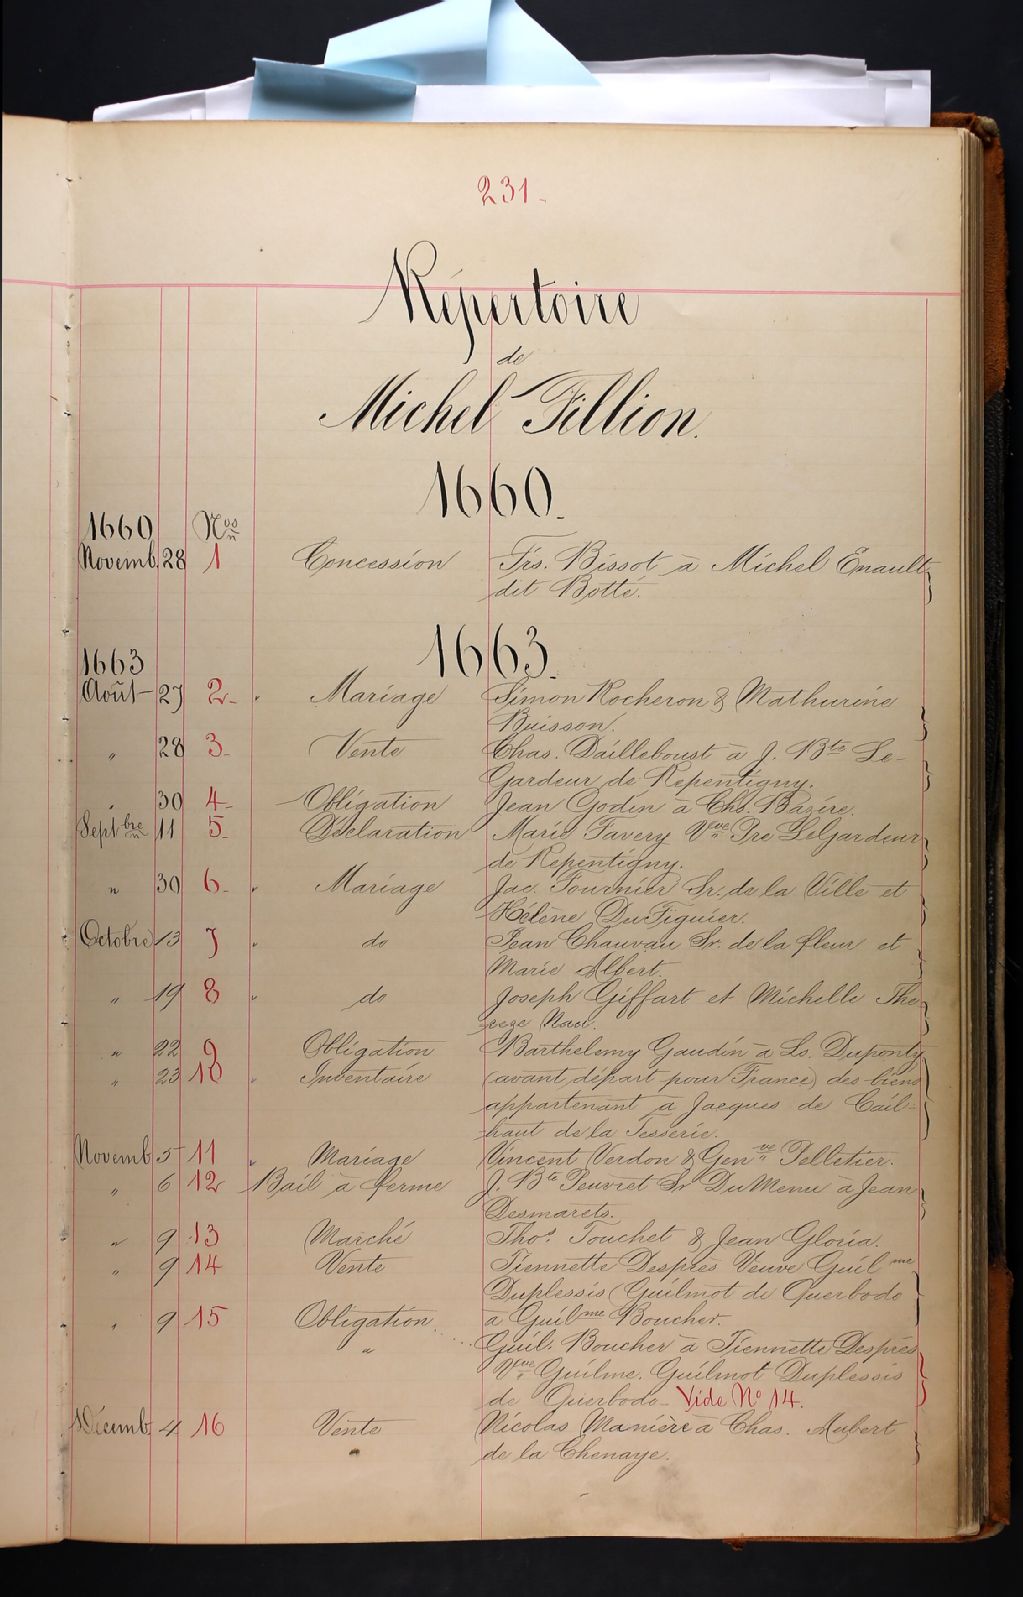 231-
Répertoire
de
Michel Fillion.
1660.
1660 Nos
Novemb. 28 1 Concession Frs. Bissot à Michel Enault
dit Botté.
1663.
1663
Août 27 2- " Mariage Simon Rocheron & Mathurine
Buisson.
" 28 3- Vente Chas. Dailleboust à J. Bte Le-
Gardeur de Repentigny.
" 30 4- Obligation Jean Godin à Chs. Bazire.
Septbre 11 5- Déclaration Marie Favery Vve Pre LeGardeur
de Repentigny.
" 30 6- " Mariage Jac. Fournier Sr. de la Ville et
Hélène DuFiguier.
Octobre 13 7 " do Jean Chauvau Sr. de la fleur et
Marie Albert.
" 19 8 " do Joseph Giffart et Michelle The
reze Nau.
" 22 9 Obligation Barthelemy Gaudin à Ls. Duponty
" 23 10 " Inventaire (avant départ pour France) des biens
appartenant à Jacques de Cail-
haut de la Tesserie.
Novemb 5 11 " Mariage Vincent Verdon & Genve Pelletier.
" 6 12 Bail à ferme J. Bte Peuvret Sr DuMenu à Jean
Desmarets.
" 9 13 Marché Thos. Touchet & Jean Gloria.
" 9 14 Vente Tiennette Després Veuve Guilme
Duplessis (Guilmot de Querbodo
à Guilme Boucher.
" 9 15 Obligation
" Guil. Boucher à Tiennette Després
Vve Guilme. Guilmot Duplessis
de Querbodo- Vide No 14.
Décemb. 4 16 Vente Nicolas Manière à Chas. Aubert
" de la Chenaye.